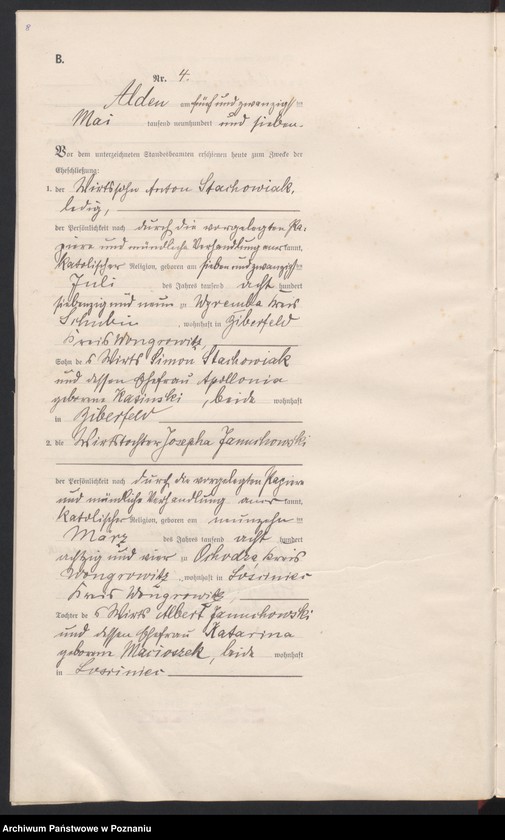 8
B.
Nr. 4.
Alden am fünfundzwanzigs ten
Mai tausend neunhundert und sieben.
Vor dem unterzeichneten Standesbeamten erschienen heute zum Zwecke der
Eheschließung:
1. der Wirtssohn Anton Stachowiak,
ledig,
der Persönlichkeit nach durch die vorgelegten Pa-
piere und mündliche Verhandlung aner kannt,
katolischer Religion, geboren am sieben und zwanzigs ten
Juli des Jahres tausend acht hundert
siebenzig und neun zu Kreis
Schubin, wohnhaft in Ziberfeld
Kreis Wongrowitz,
Sohn des Wirts Simon Stachowiak
und dessen Ehefrau Apollonia
geborene Kasinski, beide wohnhaft
in Ziberfeld
2. die Wirtstochter Josepha Januchowski
der Persönlichkeit nach durch die vorgelegten Papiere
und mündliche Verhandlung aner kannt,
katolischer Religion, geboren am neunzehn ten
März des Jahres tausend acht hundert
achtzig und vier zu Kreis
Wongrowitz, wohnhaft in Losciniec
Kreis Wongrowitz,
Tochter des Wirt Albert Januchowski
und dessen Ehefrau Katarina
geborene Macioszek, beide wohnhaft
in Losciniec
Archiwum Państwowe w Poznaniu